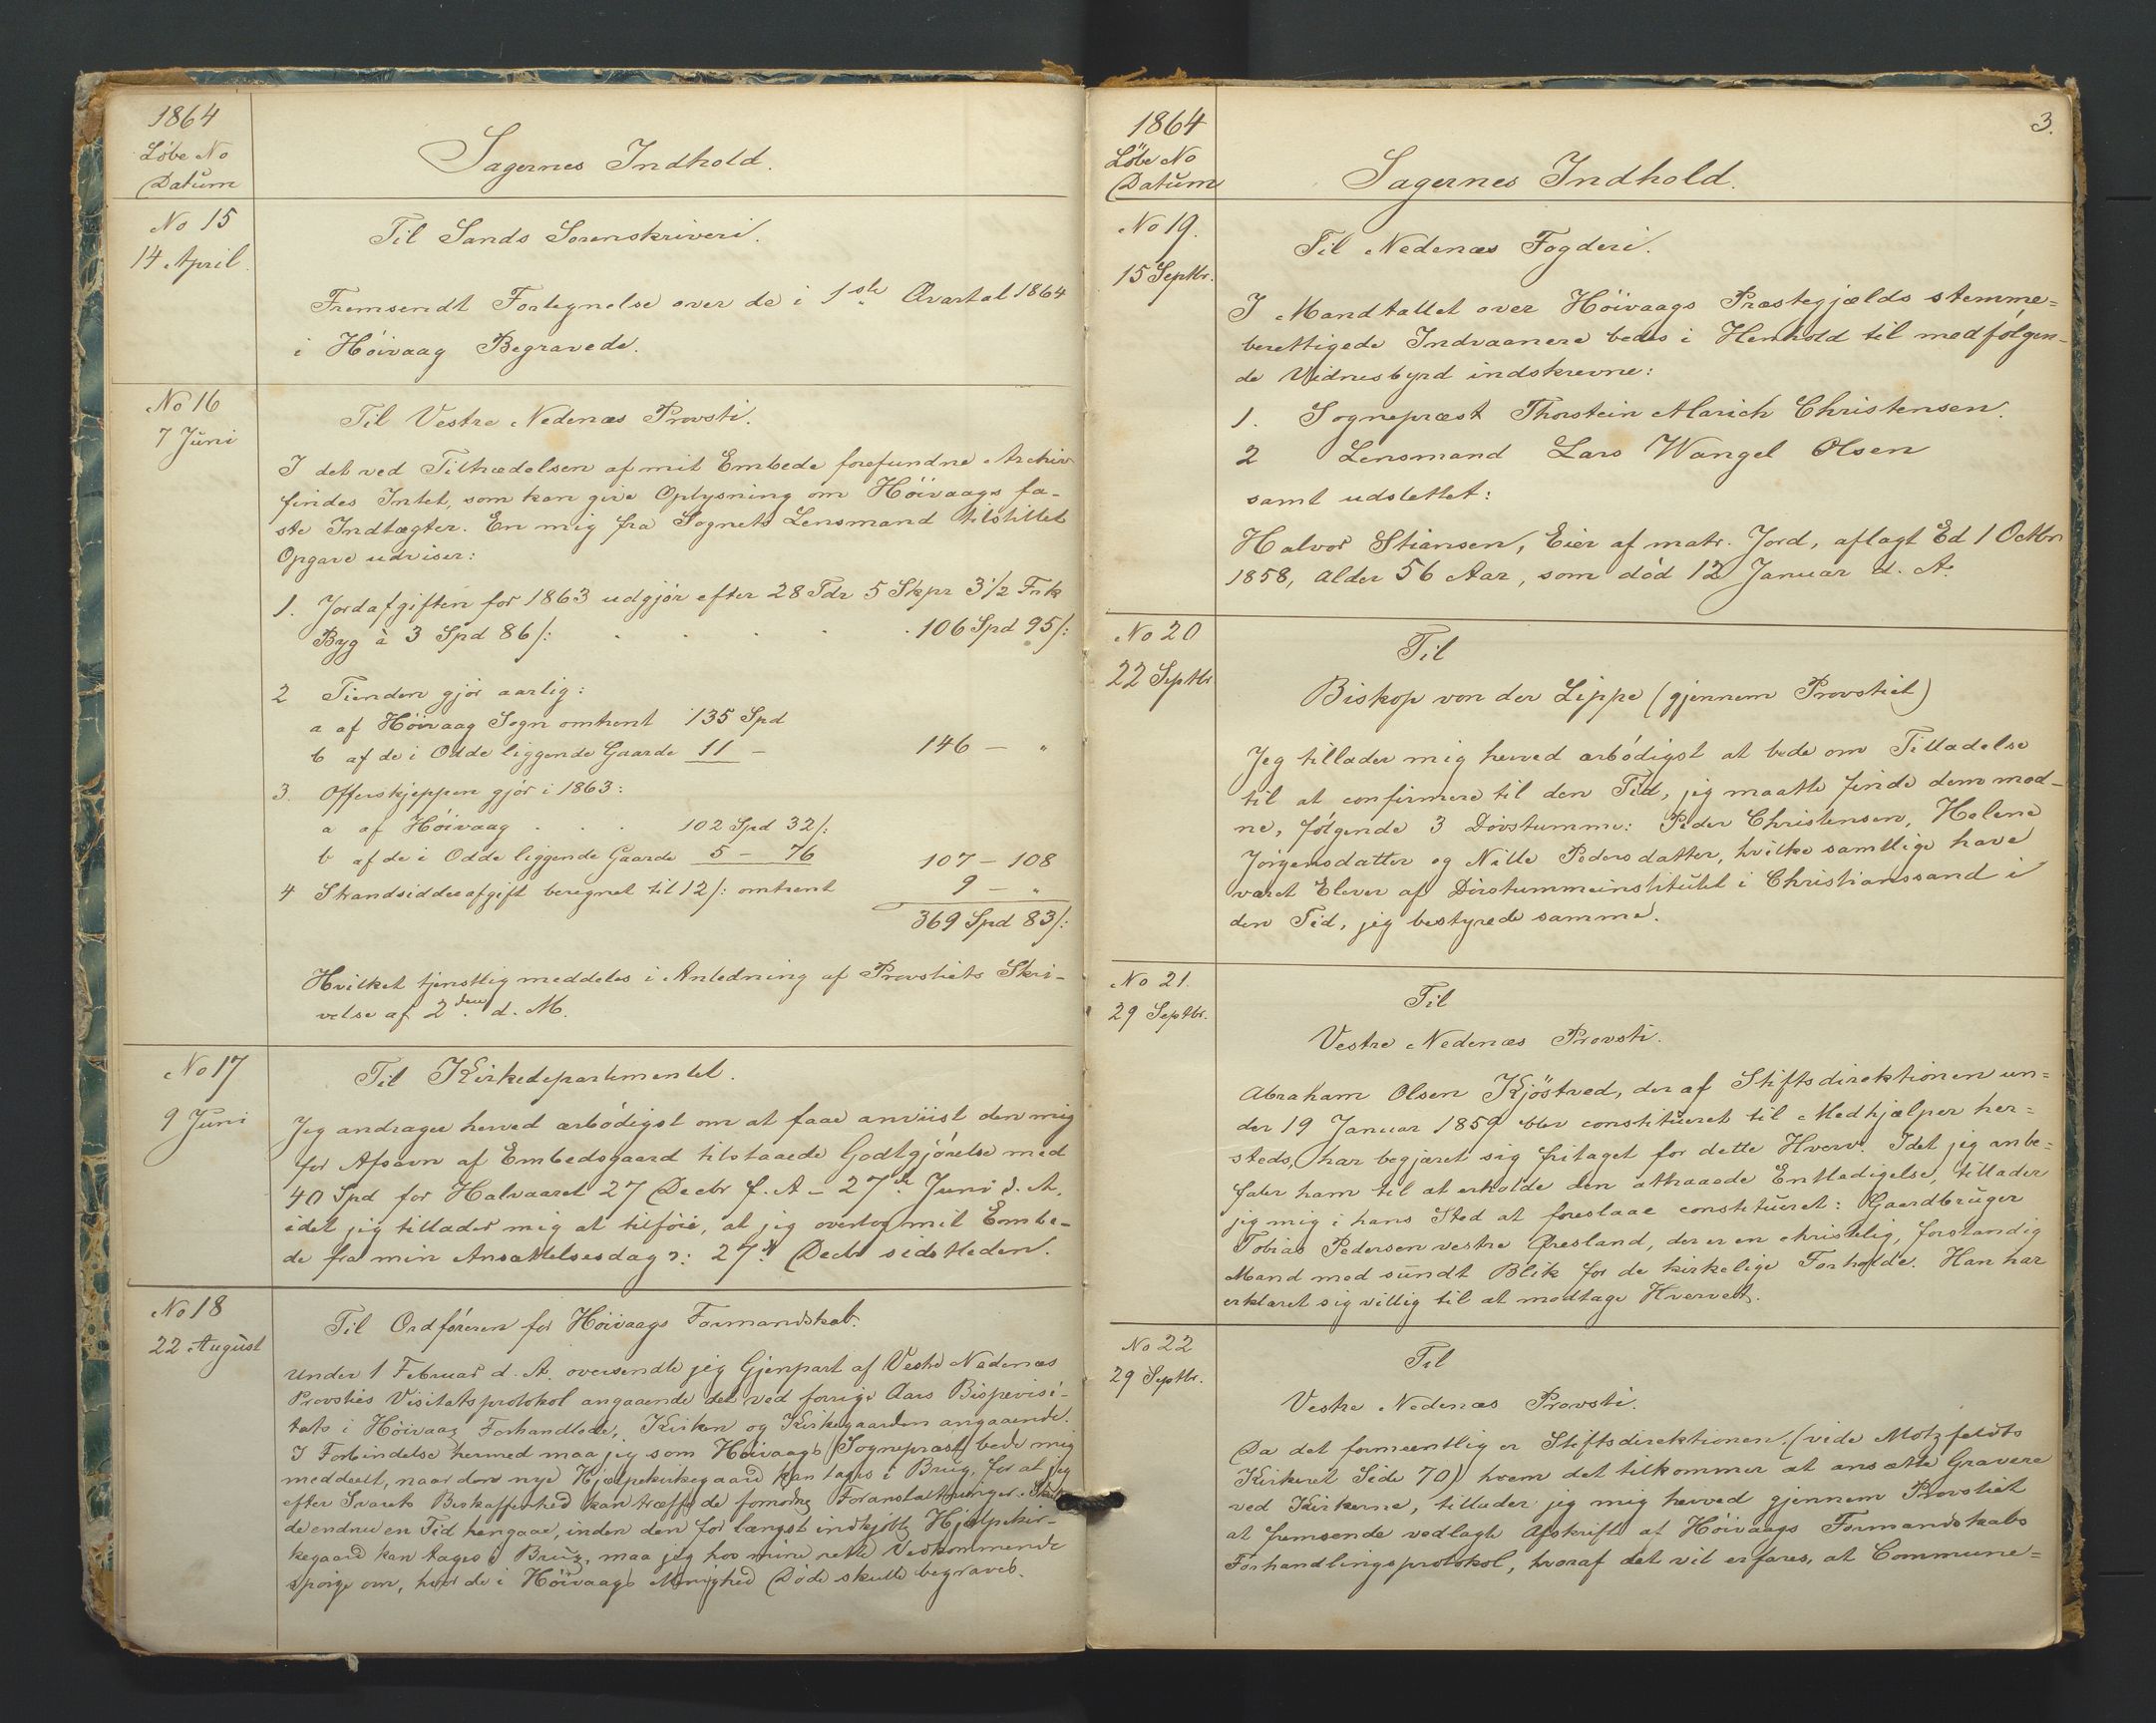 1864
Löbe No
Datum
Sagernes Indhold.
No 15
14 April.
Til Sands Sorenskriveri.
Fremsendt Fortegnelse over de i 1ste Qvartal 1864
i Höivaag Begravede.
No 16
7 Juni
Til Vestre Nedenæs Provsti.
I det ved Tiltrædelsen af mit Embede forefundne Archiv
findes Intet, som kan give Oplysning om Höivaags fa-
ste Indtægter. En mig fra Sognets Lensmand tilstillet
Opgave udviser:
1. Jordafgiften for 1863 udgjör efter 28 Tdr 5 Skpr 3½ Frk
Byg à 3 Spd 86 /: . . . . . 106 Spd 95 /:
2 Tienden gjör aarlig:
a af Höivaag Sogn omtrent 135 Spd
b af de i Odde liggende Gaarde 11 — 146 — "
3. Offerskjeppen gjör i 1863:
a af Höivaag . . . 102 Spd 32 /:
b af de i Odde liggende Gaarde 5 — 76 107 — 108
4 Strandsidderafgift beregnet til 12 /: omtrent 9 — "
369 Spd 83 /:
Hvilket tjenstlig meddeles i Anledning af Provstiets Skri-
velse af 2den d. M.
No 17
9 Juni
Til Kirkedepartementet.
Jeg andrager herved ærbödigst om at faae anviist den mig
for Afsavn af Embedsgaard tilstaaede Godtgjörelse med
40 Spd for Halvaaret 27 Decbr f. A – 27de Juni d. A,
idet jeg tillader mig at tilföie, at jeg overtog mit Embe-
de fra min Ansættelsesdag ɔ: 27de Decbr sidstleden.
No 18
22 August
Til Ordföreren for Höivaags Formandskab.
Under 1 Februar d. A. oversendte jeg Gjenpart af Vestre Nedenæs
Provsties Visitatsprotokol angaaende det ved forrige Aars Bispevisi-
tats i Höivaag Forhandlede, Kirken og Kirkegaarden angaaende.
I Forbindelse hermed maa jeg som Höivaags Sognepræst bede mig
meddeelt, naar den nye Hjælpekirkegaard kan tages i Brug, for at jeg
efter Svarets Beskaffenhed kan træffe de fornödne Foranstaltninger. Skul-
de endnu en Tid hengaae, inden den for længst indkjöbte Hjælpekir-
kegaard kan tages i Brug, maa jeg hos mine rette Vedkommende
spörge om, hvor de i Höivaags Menighed Döde skulle begraves.
1864
Löbe No
Datum
3.
Sagernes Indhold.
No 19.
15 Septbr.
Til Nedenæs Fogderi.
I Mandtallet over Höivaags Præstegjælds stemme=
berettigede Indvaanere bedes i Henhold til medfölgen-
de Vidnesbyrd indskrevne:
1. Sognepræst Thorstein Alarich Christensen.
2 Lensmand Lars Wangel Olsen
samt udslettet:
Halvor Stiansen, Eier af matr. Jord, aflagt Ed 1 Octbr
1858, Alder 56 Aar, som död 12 Januar d. A.
No 20
22 Septbr
Til
Biskop von der Lippe (gjennem Provstiet)
Jeg tillader mig herved ærbödigst at bede om Tilladelse
til at confirmere til den Tid, jeg maatte finde dem mod-
ne, fölgende 3 Dövstumme: Peder Christensen, Helene
Jörgensdatter og Nille Pedersdatter, hvilke samtlige have
været Elever af Dövstummeinstitutet i Christianssand i
den Tid, jeg bestyrede samme.
No 21.
29 Septbr.
Til
Vestre Nedenæs Provsti.
Abraham Olsen Kjöstved, der af Stiftsdirektionen un=
der 19 Januar 1859 blev constitueret til Medhjælper her=
steds, har begjæret sig fritaget for dette Hverv. Idet jeg anbe=
faler ham til at erholde den attraaede Entledigelse, tillader
jeg mig i hans Sted at foreslaae constitueret: Gaardbruger
Tobias Pedersen vestre Öresland, der er en christelig, forstandig
Mand med sundt Blik for de kirkelige Forholde. Han har
erklæret sig villig til at modtage Hvervet.
No 22
29 Septbr.
Til
Vestre Nedenæs Provsti.
Da det formeentlig er Stiftsdirektionen (vide Motzfeldts
Kirkeret Side 70) hvem det tilkommer at ansætte Gravere
ved Kirkerne, tillader jeg mig herved gjennem Provstiet
at fremsende vedlagte Afskrift af Höivaags Formandskabs
Forhandlingsprotokol, hvoraf det vil erfares, at Commune=